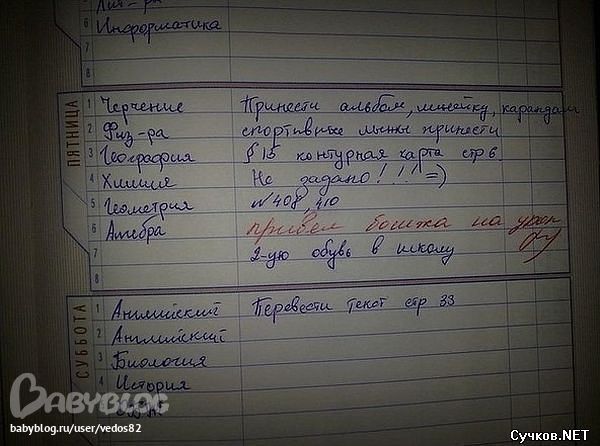 Лит-ра
6 Информатика
7
8
ПЯТНИЦА
1 Черчение Принести альбом, линейку, карандаш
2 Физ-ра спортивные лыжы принести
3 География § 15 контурная карта стр 6.
4 Химия Не задано!!!! =)
5 Геометрия № 408, 410
6 Алгебра привел бомжа на урок
7 2-ую обувь в школу
8
СУББОТА
1 Английский Перевести текст стр 33
2 Английский
3 Биология
4 История
5 ОБЖ
BABYBLOG
babyblog.ru/user/vedos82
Сучков.NET